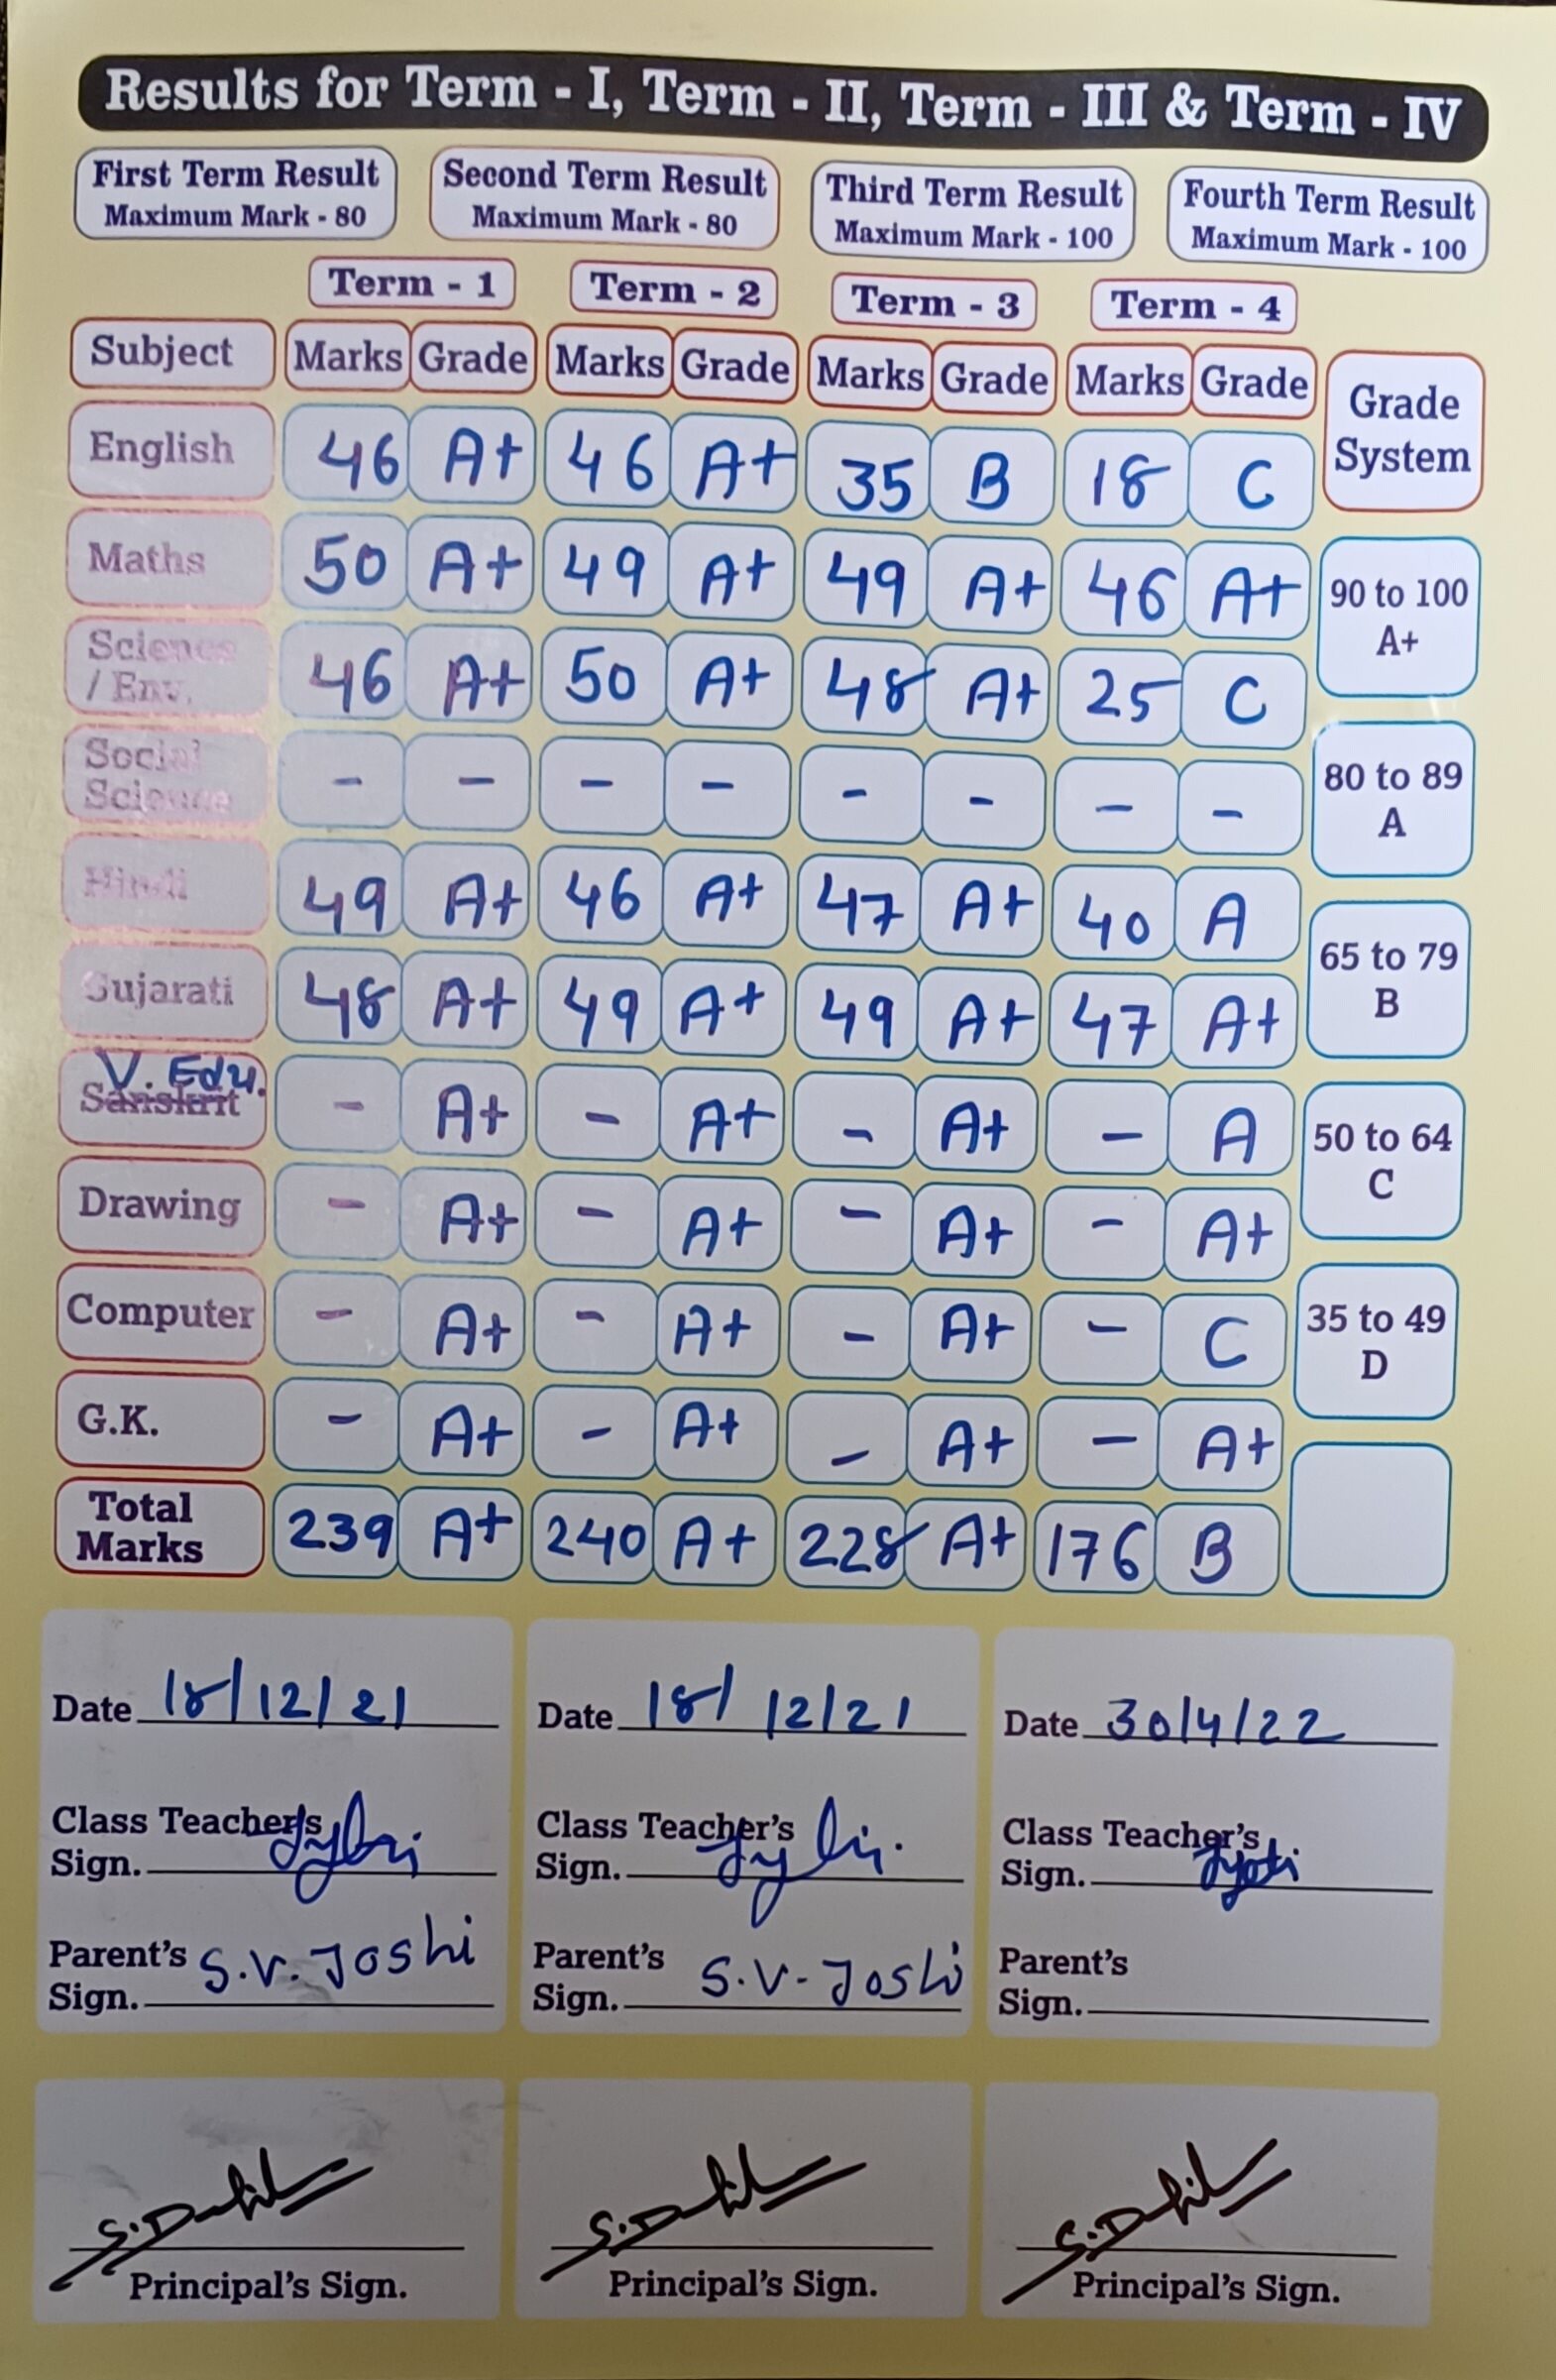 Results for Term - I, Term - II, Term - III & Term - IV
First Term Result Second Term Result Third Term Result Fourth Term Result
Maximum Mark - 80 Maximum Mark - 80 Maximum Mark - 100 Maximum Mark - 100
Term - 1 Term - 2 Term - 3 Term - 4
Subject Marks Grade Marks Grade Marks Grade Marks Grade Grade System
English 46 A+ 46 A+ 35 B 18 C
Maths 50 A+ 49 A+ 49 A+ 46 A+ 90 to 100 A+
Science / Env. 46 A+ 50 A+ 48 A+ 25 C
Social Science - - - - - - - - 80 to 89 A
Hindi 49 A+ 46 A+ 47 A+ 40 A
Gujarati 48 A+ 49 A+ 49 A+ 47 A+ 65 to 79 B
V. Edu.
Sanskrit - A+ - A+ - A+ - A 50 to 64 C
Drawing - A+ - A+ - A+ - A+
Computer - A+ - A+ - A+ - C 35 to 49 D
G.K. - A+ - A+ - A+ - A+
Total Marks 239 A+ 240 A+ 228 A+ 176 B
Date 18/12/21 Date 18/12/21 Date 30/4/22
Class Teacher's Class Teacher's Class Teacher's
Sign. Sign. Sign. Jyoti
Parent's S.V. Joshi Parent's S.V. Joshi Parent's
Sign. Sign. Sign.
Principal's Sign. Principal's Sign. Principal's Sign.